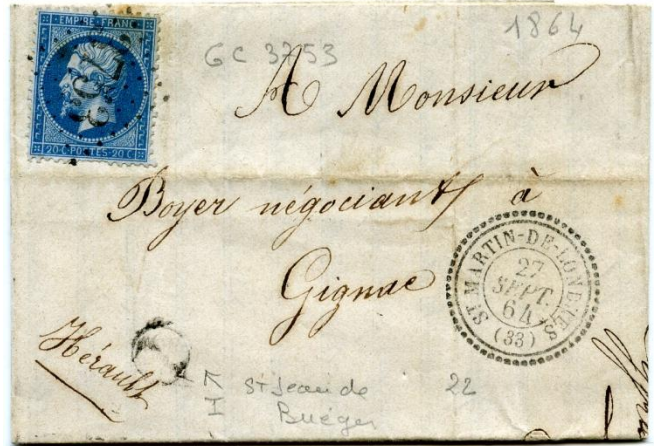 EMPIRE FRANC
20 C. POSTES 20 C.
GC 3753
1864
A Monsieur
Boyer négociant à
Gignac
Hérault
ST MARTIN-DE-LONDRES
27
SEPT.
64
(33)
I
St Jean de
Buéges
22